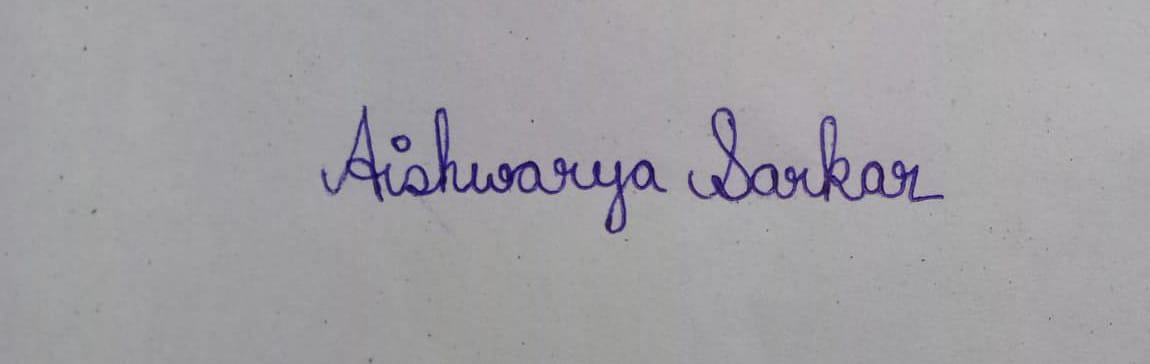 Aishwarya Sarkar